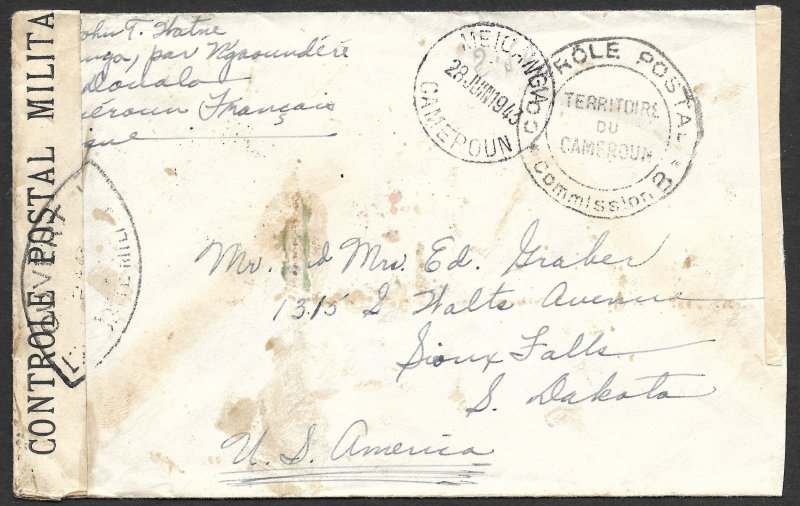 CONTROLE POSTAL MILITA
ohn T. Watne
nga, par Ngaoundéré
Douala
méroun Français
que
MEIGANGA
28 JUIN 1943
CAMEROUN
CONTRÔLE POSTAL
TERRITOIRE
DU
CAMEROUN
Commission B
OUVERT
Mr. and Mrs. Ed. Graber
1315 S Walts Avenue
Sioux Falls
S. Dakota
U. S. America